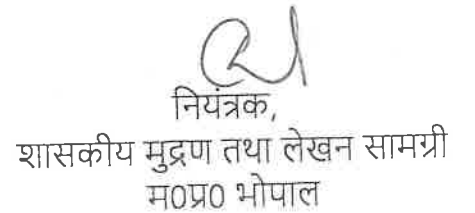 नियंत्रक,
शासकीय मुद्रण तथा लेखन सामग्री
म0प्र0 भोपाल